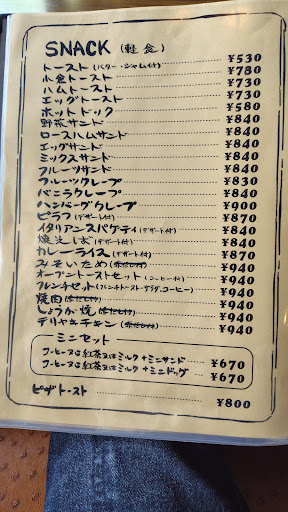 SNACK (軽食)
トースト(バター・ジャム付) ¥530
小倉トースト ¥780
ハムトースト ¥730
エッグトースト ¥730
ホットドック ¥580
野菜サンド ¥840
ロースハムサンド ¥840
エッグサンド ¥840
ミックスサンド ¥840
フルーツサンド ¥840
フルーツクレープ ¥830
バニラクレープ ¥840
ハンバーグクレープ ¥900
ピラフ(デザート付) ¥870
イタリアンスパゲティ(デザート付) ¥840
焼そば(デザート付) ¥840
カレーライス(デザート付) ¥870
みそいため(赤だし付) ¥940
オープントーストセット(コーヒー付) ¥940
フレンチセット(フレンチトースト・サラダ、コーヒー) ¥940
焼肉(赤だし付) ¥940
しょうが焼(赤だし付) ¥940
テリヤキチキン(赤だし付) ¥940
ミニセット
コーヒー又は紅茶又はミルク+ミニサンド ¥670
コーヒー又は紅茶又はミルク+ミニドッグ ¥670
ピザトースト ¥800